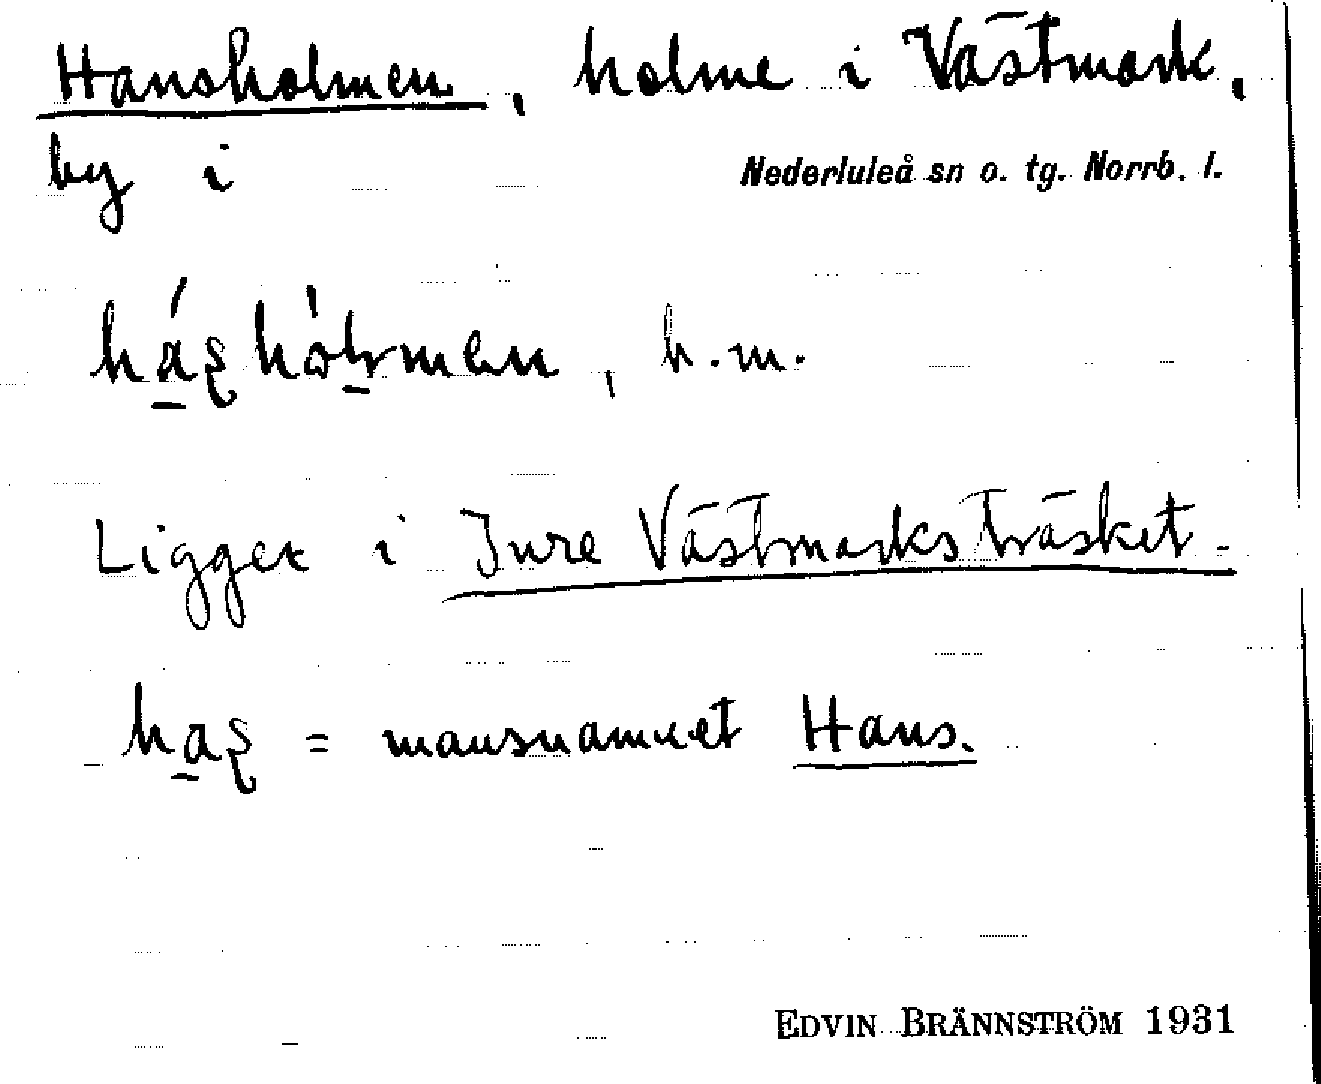 Hansholmen, holme i Västmark,
by i Nederluleå sn o. tg. Norrb. l.
h.m.
Ligger i Inre Västmarksträsket.
= mansnamnet Hans.
EDVIN BRÄNNSTRÖM 1931